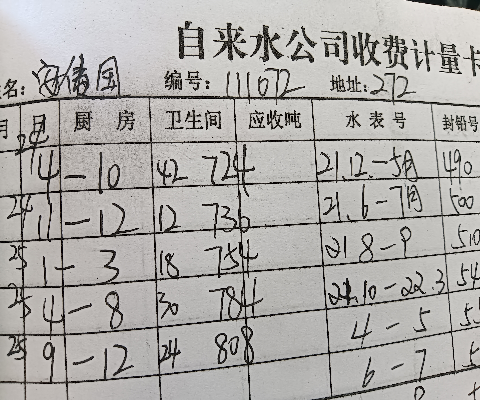 自来水公司收费计量卡
名: 国 编号: 111072 地址: 272
月 月 厨房 卫生间 应收吨 水表号 封铅号
24 4-10 42 724 21.12.-5月 490
24 11-12 12 736 21.6-7月 500
25 1-3 18 754 21 8-9 510
25 4-8 30 784 21.10-22.3 54
25 9-12 24 808 4-5 5
6-7 5